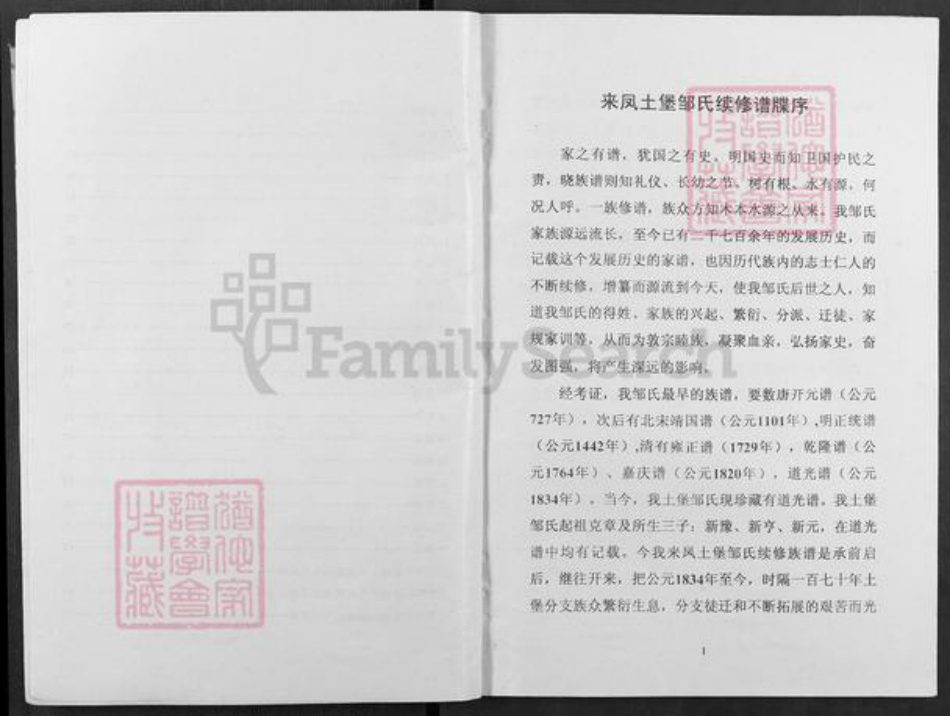 来凤土堡邹氏续修谱牒序
家之有谱，犹国之有史。明国史而知卫国护民之
责，晓族谱则知礼仪、长幼之节。树有根、水有源，何
况人呼。一族修谱，族众方知木本水源之从来。我邹氏
家族源远流长，至今已有二千七百余年的发展历史，而
记载这个发展历史的家谱，也因历代族内的志士仁人的
不断续修，增纂而源流到今天，使我邹氏后世之人，知
道我邹氏的得姓、家族的兴起、繁衍、分派、迁徒、家
规家训等，从而为敦宗睦族，凝聚血亲，弘扬家史，奋
发图强，将产生深远的影响。
经考证，我邹氏最早的族谱，要数唐开元谱（公元
727年），次后有北宋靖国谱（公元1101年）,明正统谱
（公元1442年）,清有雍正谱（1729年），乾隆谱（公
元1764年）、嘉庆谱（公元1820年），道光谱（公元
1834年）。当今，我土堡邹氏现珍藏有道光谱。我土堡
邹氏起祖克章及所生三子：新豫、新亨、新元，在道光
谱中均有记载。今我来凤土堡邹氏续修族谱是承前启
后，继往开来，把公元1834年至今，时隔一百七十年土
堡分支族众繁衍生息，分支徒迁和不断拓展的艰苦而光
1
FamilySearch